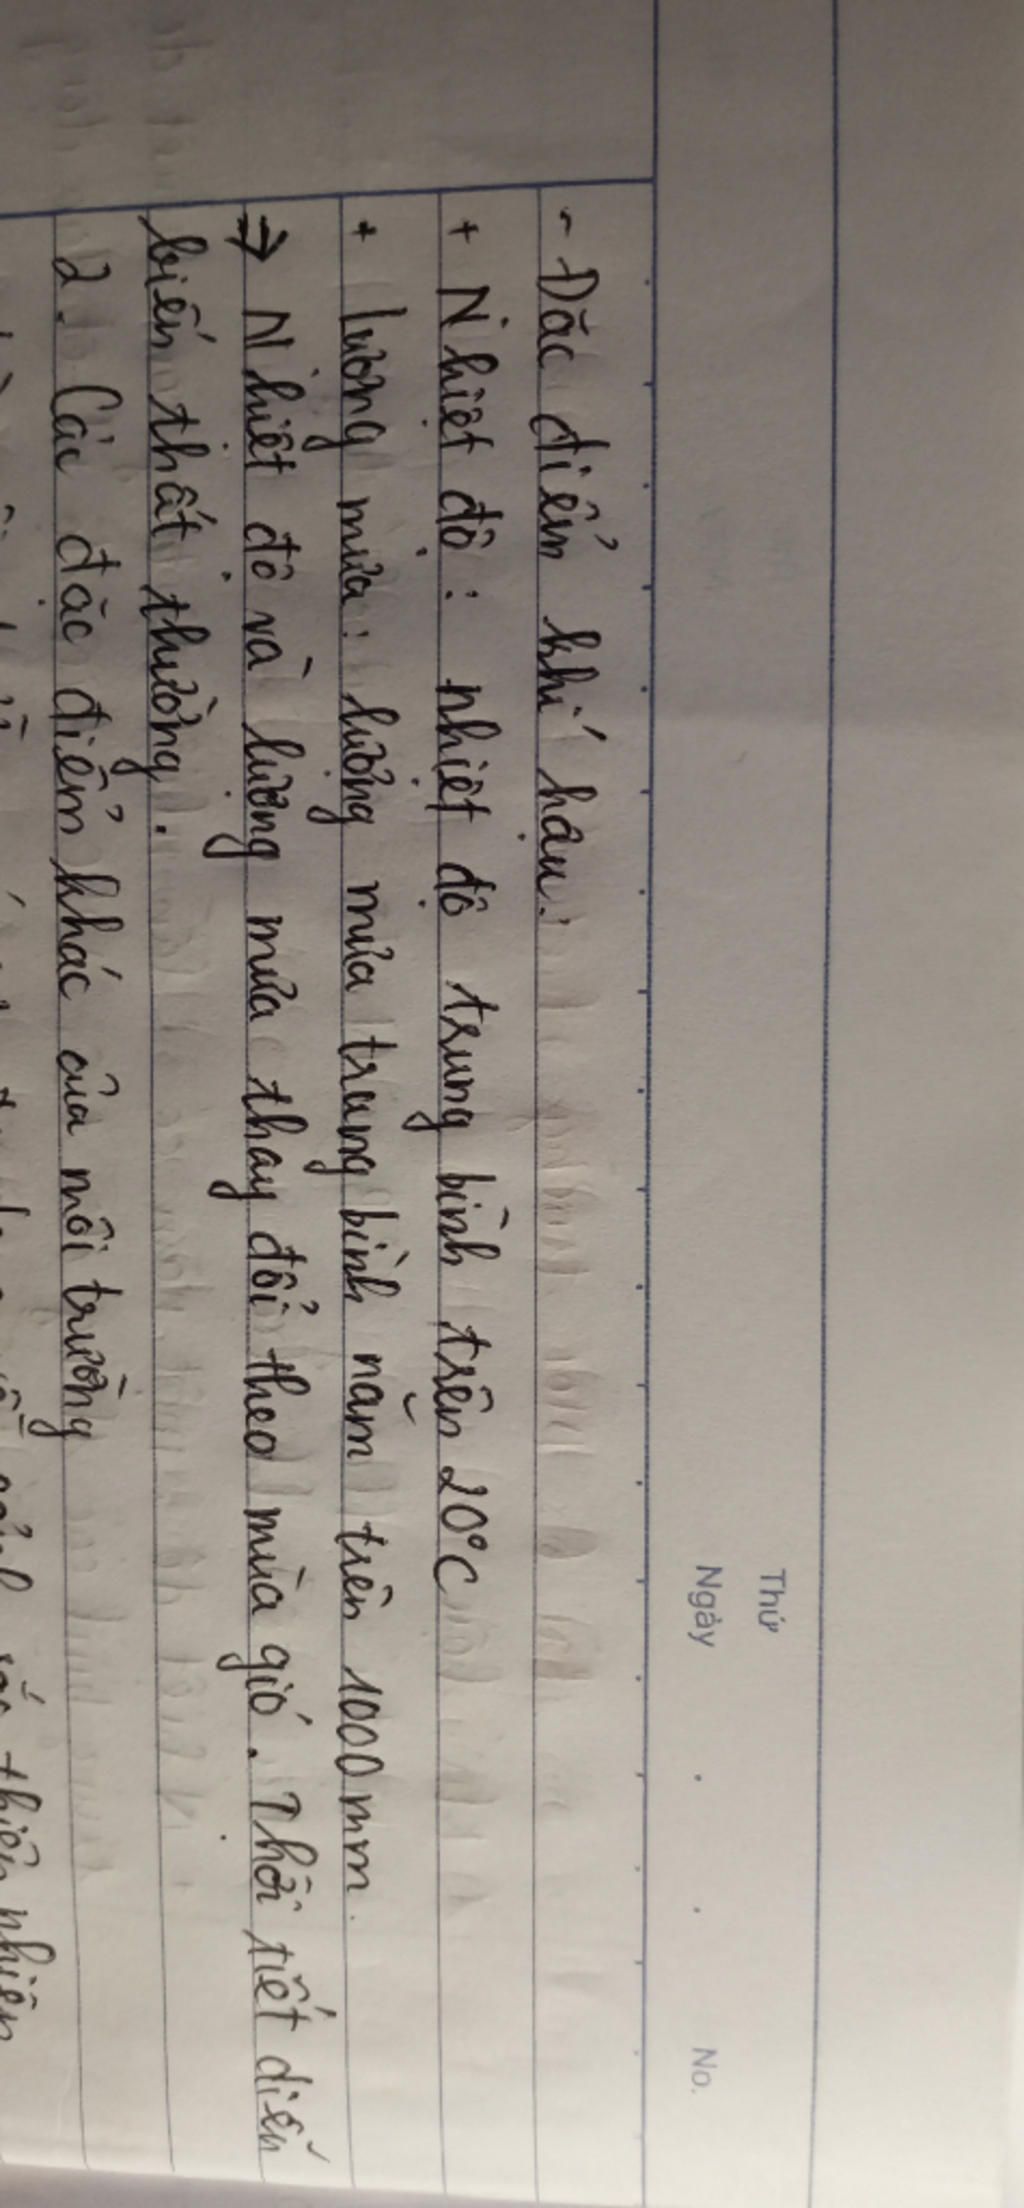 Thứ
Ngày No.
- Đặc điểm khí hậu:
+ Nhiệt độ: nhiệt độ trung bình trên 20°C
+ lượng mưa: lượng mưa trung bình năm trên 1000mm.
→ Nhiệt độ và lượng mưa thay đổi theo mùa gió. Thời tiết diễn
biến thất thường.
2. Các đặc điểm khác của môi trường
thiên nhiên